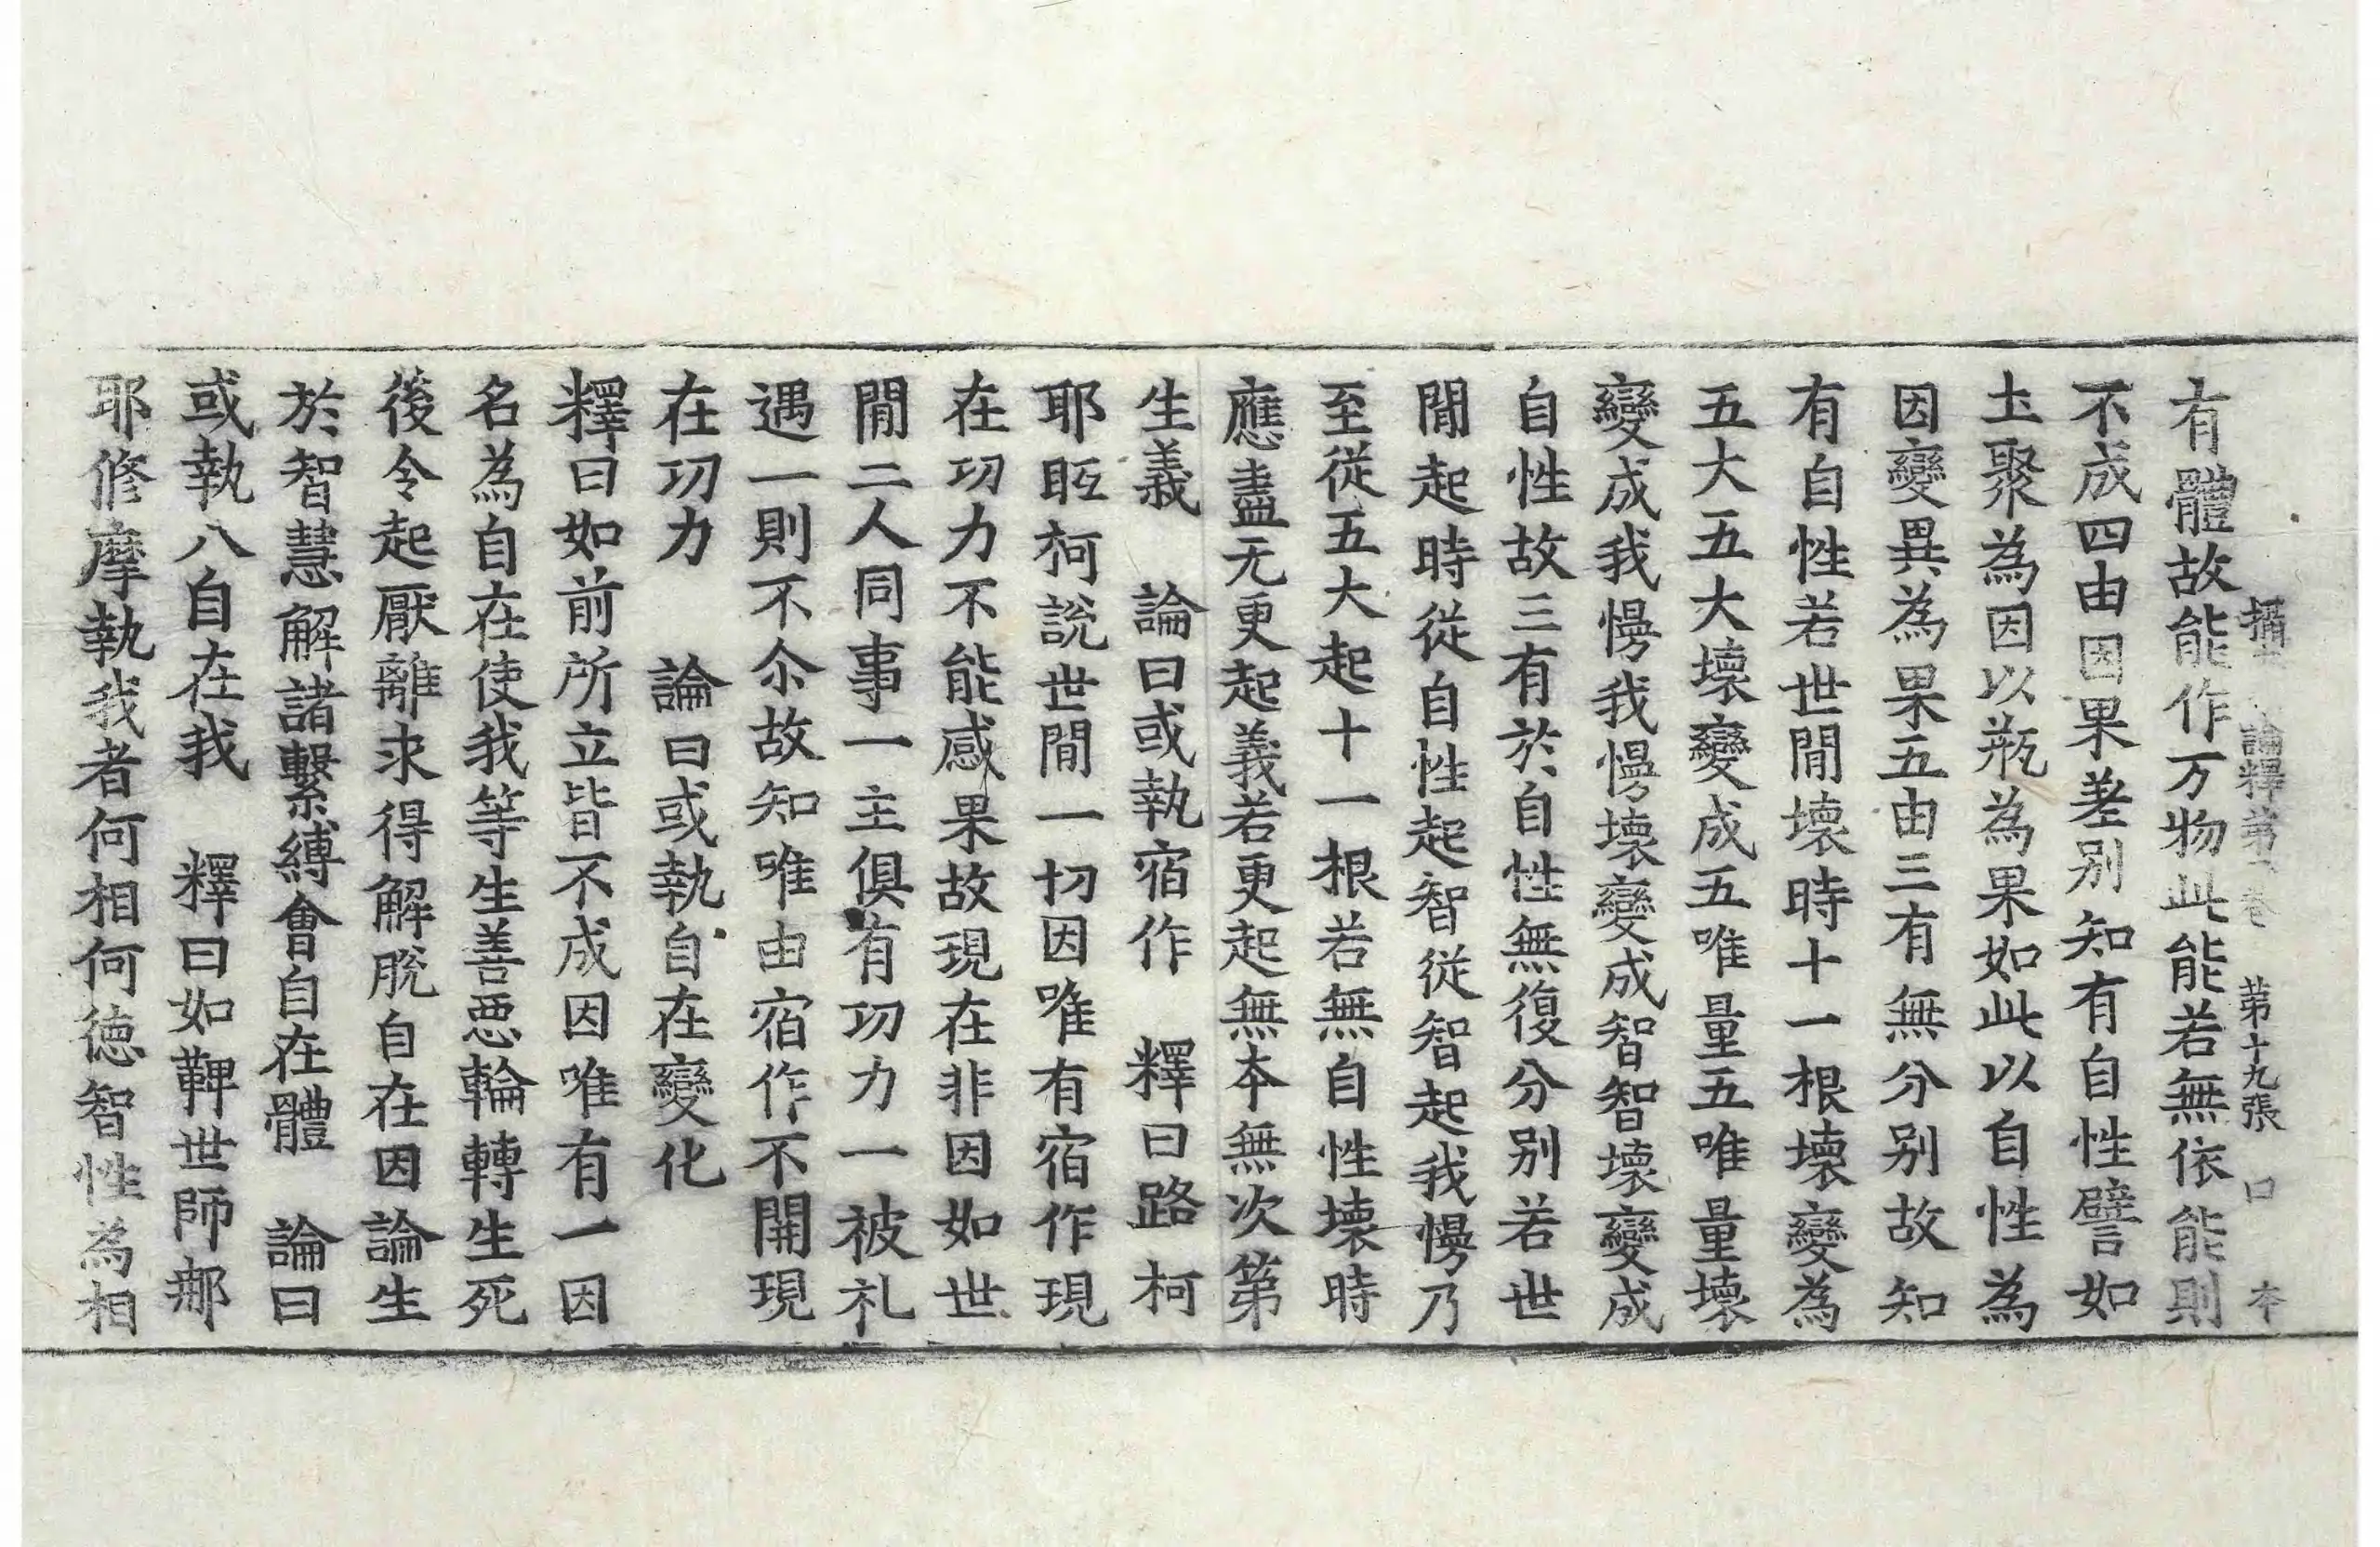 攝　論釋第　卷　第十九張　口　本
有體故能作万物此能若無依能則
不成四由因果差别知有自性譬如
土聚為因以瓶為果如此以自性為
因變異為果五由三有無分别故知
有自性若世間壞時十一根壞變為
五大五大壞變成五唯量五唯量壞
變成我慢我慢壞變成智智壞變成
自性故三有於自性無復分别若世
間起時從自性起智從智起我慢乃
至從五大起十一根若無自性壞時
應盡无更起義若更起無本無次第
生義　論曰或執宿作　釋曰路柯
耶眂柯說世間一切因唯有宿作現
在功力不能感果故現在非因如世
間二人同事一主俱有功力一被礼
遇一則不尒故知唯由宿作不關現
在功力　論曰或執自在變化
釋曰如前所立皆不成因唯有一因
名為自在使我等生善惡輪轉生死
後令起厭離求得解脫自在因論生
於智慧解諸繫縛會自在體　論曰
或執八自在我　釋曰如鞞世師䣕
耶修摩執我者何相何德智性為相